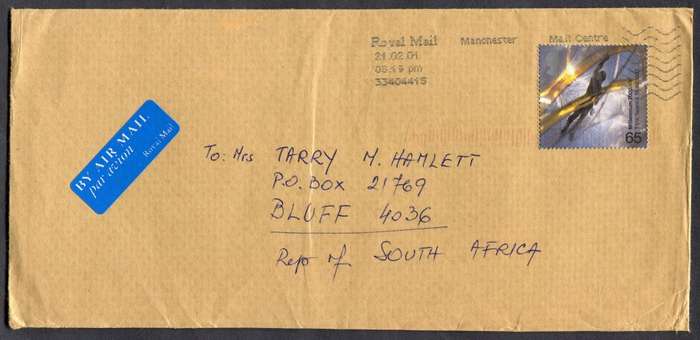 Royal Mail Manchester Mail Centre
21.02.01
33404415
65
BY AIR MAIL
par avion
Royal Mail
To: Mrs TARRY M. HAMLETT
P.O. BOX 21769
BLUFF 4036
Rep of SOUTH AFRICA